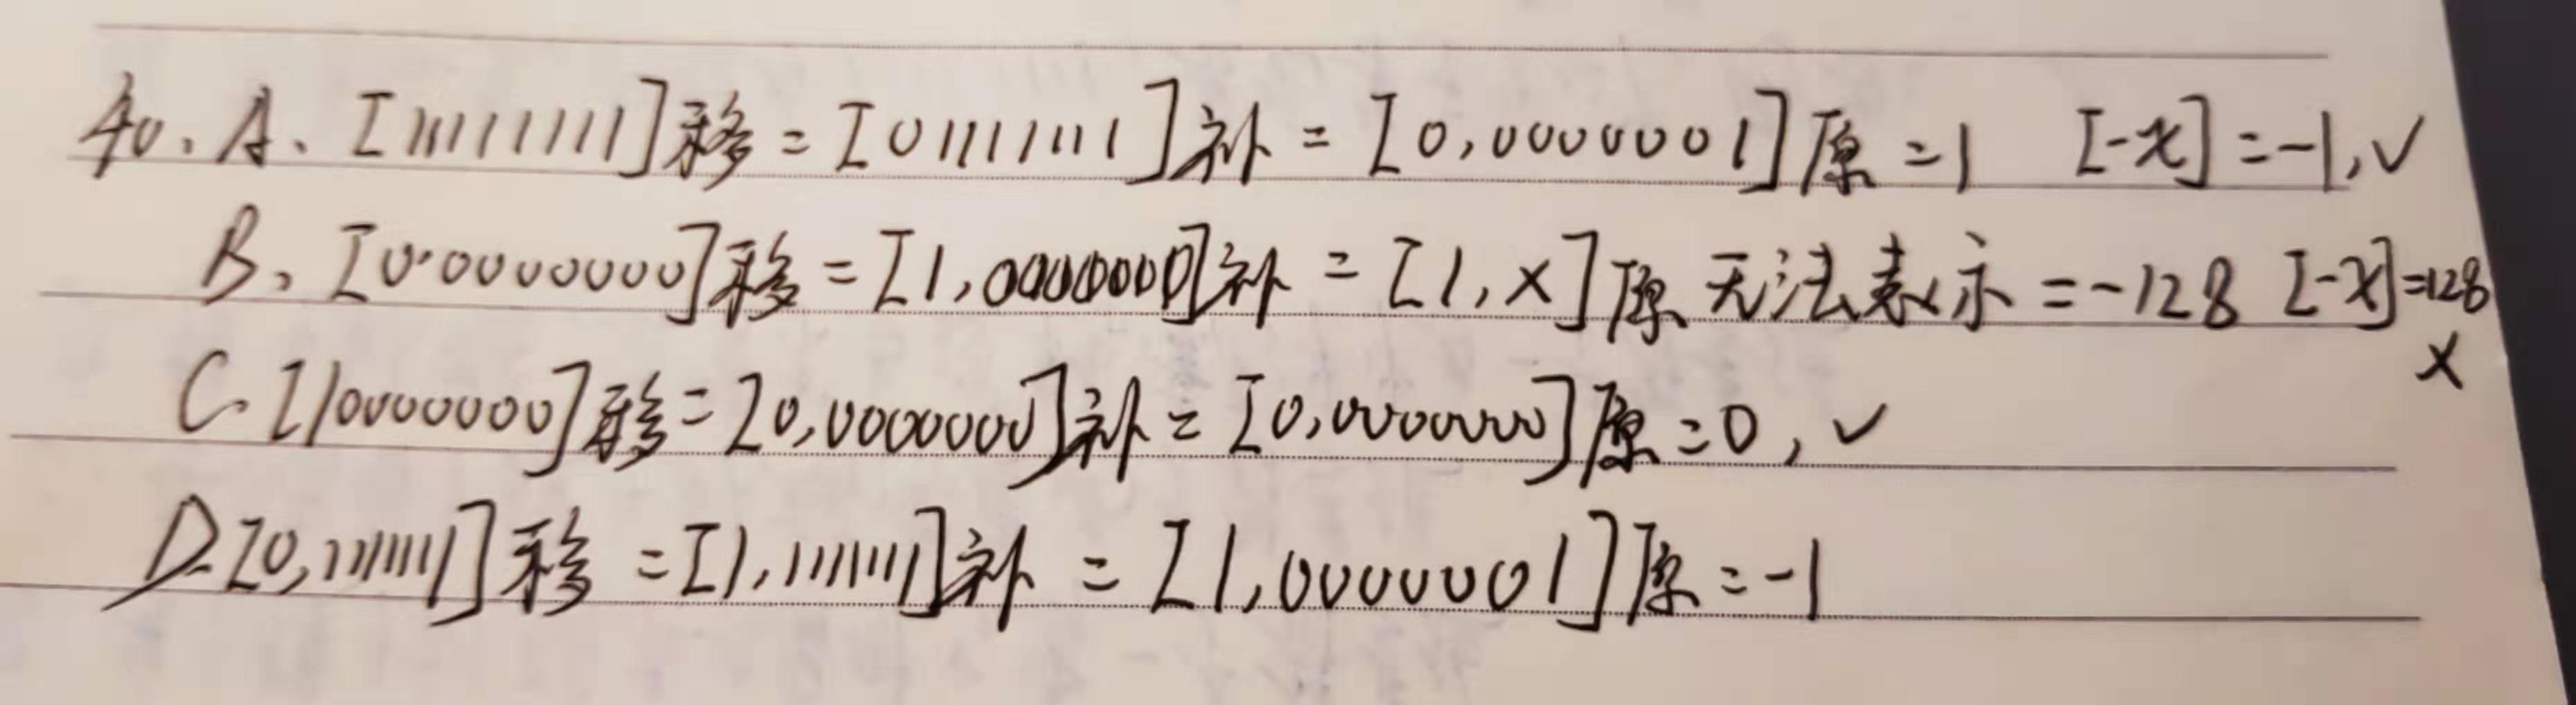 40、A、[11111111]移=[01111111]补=[0,0000001]原=1 [-x]=-1,✓
B、[0.0000000]移=[1,0000000]补=[1,×]原 无法表示=-128 [-x]=128
×
C.[10000000]移=[0,0000000]补=[0,0000000]原=0,✓
D.[0,1111111]移=[1,1111111]补=[1,0000001]原=-1